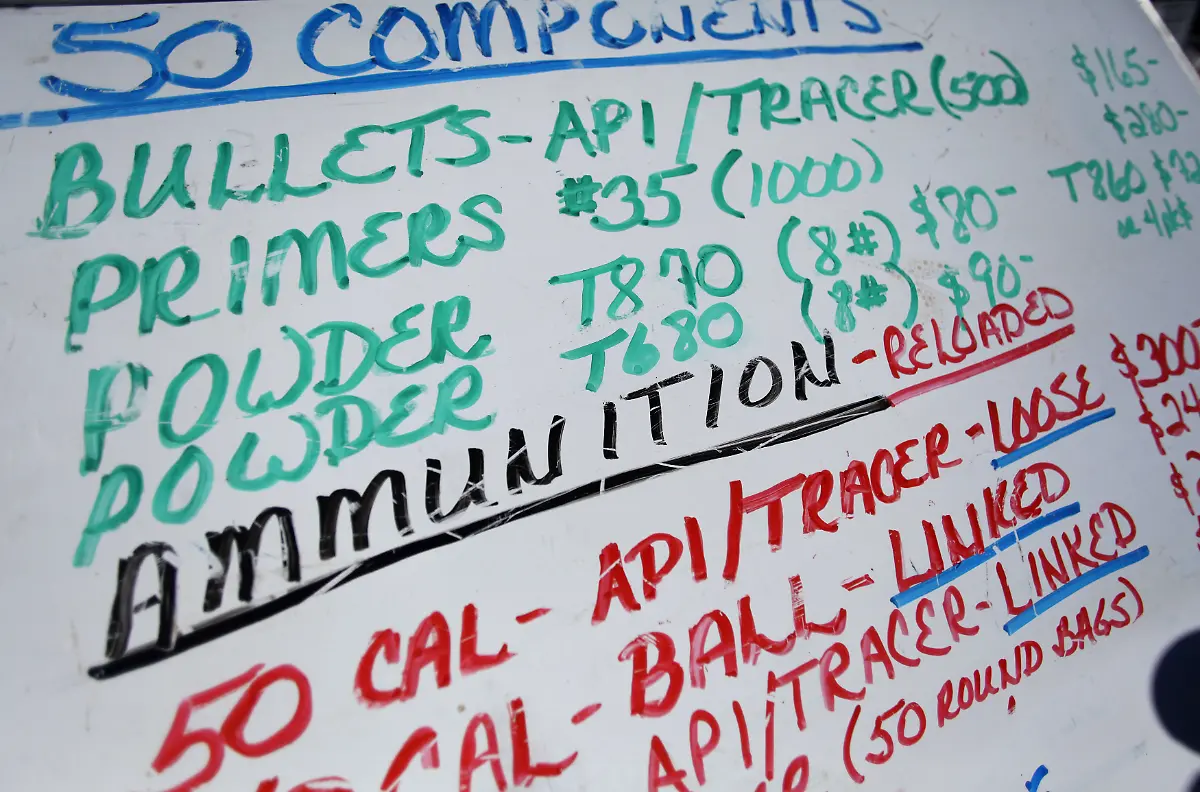 50 COMPONENTS
BULLETS - API/TRACER (500) $165-
PRIMERS #35 (1000) $280-
POWDER T870 (8#) $80- T860
POWDER T680 (8#) $90-
AMMUNITION - RELOADED
50 CAL - API/TRACER - LOOSE $300
CAL - BALL - LINKED
API/TRACER - LINKED
(50 ROUND BAGS)